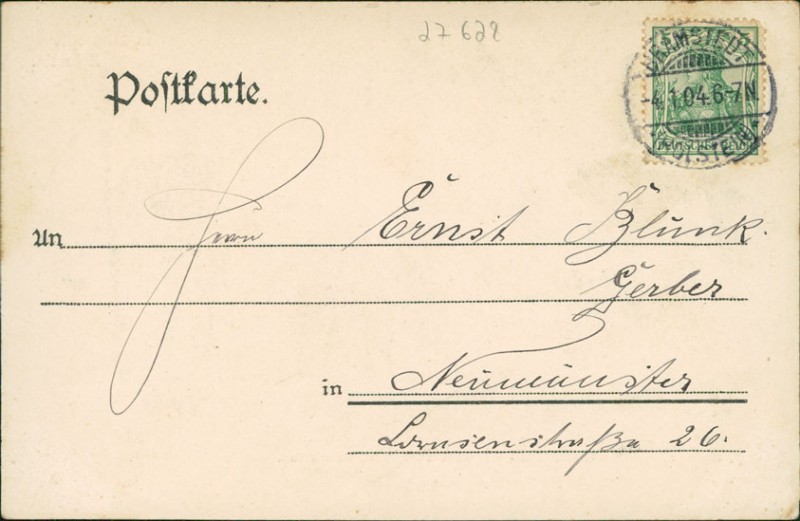 27628
BRAMSTEDT
-4.1.04.6-7N.
(HOLSTEIN)
DEUTSCHES REICH
Poſtkarte.
An Herrn Ernst Blunk.
Gerber
in Neumünster
Lornsenstraße 26.